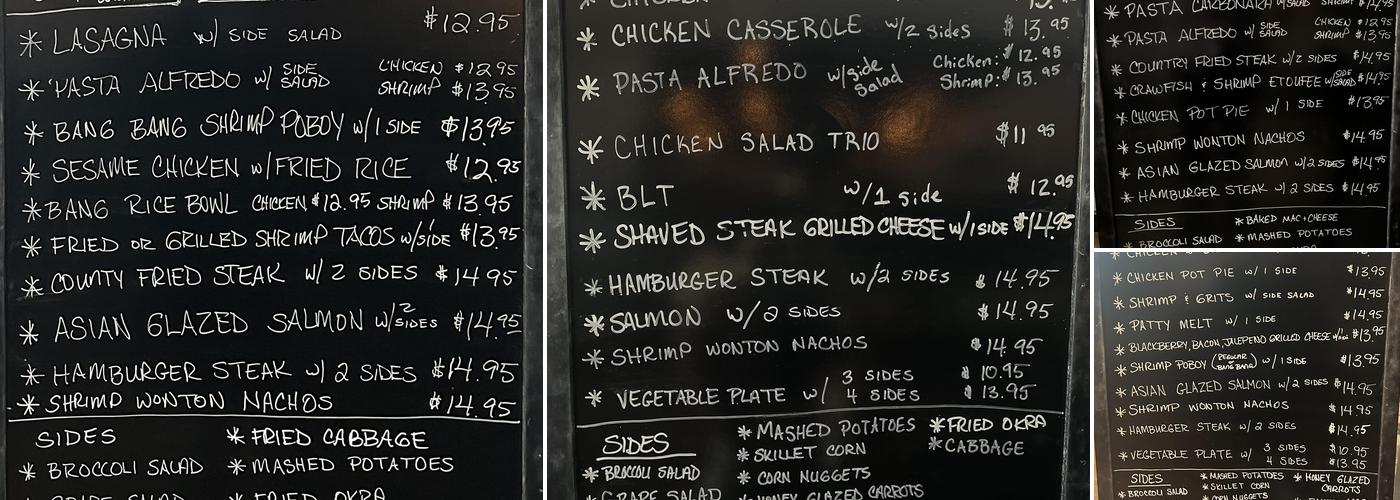 $12.95
* LASAGNA w/ SIDE SALAD
* PASTA ALFREDO w/ SIDE SALAD CHICKEN $12.95
SHRIMP $13.95
* BANG BANG SHRIMP POBOY w/1 SIDE $13.95
* SESAME CHICKEN w/FRIED RICE $12.95
* BANG RICE BOWL CHICKEN $12.95 SHRIMP $13.95
* FRIED OR GRILLED SHRIMP TACOS w/SIDE $13.95
* COUNTY FRIED STEAK w/ 2 SIDES $14.95
* ASIAN GLAZED SALMON w/2 SIDES $14.95
* HAMBURGER STEAK w/ 2 SIDES $14.95
* SHRIMP WONTON NACHOS $14.95
SIDES * FRIED CABBAGE
* BROCCOLI SALAD * MASHED POTATOES
GRAPE SALAD * FRIED OKRA
CHICKEN
* CHICKEN CASSEROLE w/2 sides $13.95
* PASTA ALFREDO w/side Salad Chicken: $12.95
Shrimp: $13.95
* CHICKEN SALAD TRIO $11.95
* BLT w/1 side $12.95
* SHAVED STEAK GRILLED CHEESE w/1 SIDE $14.95
* HAMBURGER STEAK w/2 SIDES $14.95
* SALMON w/2 SIDES $14.95
* SHRIMP WONTON NACHOS $14.95
* VEGETABLE PLATE w/ 3 SIDES $10.95
4 SIDES $13.95
SIDES * MASHED POTATOES * FRIED OKRA
* SKILLET CORN * CABBAGE
* BROCCOLI SALAD * CORN NUGGETS
GRAPE SALAD HONEY GLAZED CARROTS
* PASTA CARBONARA w/ SALAD SHRIMP $14.95
* PASTA ALFREDO w/ SIDE SALAD CHICKEN $12.95
SHRIMP $13.95
* COUNTRY FRIED STEAK w/2 SIDES $14.95
* CRAWFISH & SHRIMP ETOUFEE w/SIDE SALAD $14.95
* CHICKEN POT PIE w/ 1 SIDE $13.95
* SHRIMP WONTON NACHOS $14.95
* ASIAN GLAZED SALMON w/2 SIDES $14.95
* HAMBURGER STEAK w/ 2 SIDES $14.95
SIDES * BAKED MAC+CHEESE
* BROCCOLI SALAD * MASHED POTATOES
* CHICKEN POT PIE w/ 1 SIDE $13.95
* SHRIMP & GRITS w/ SIDE SALAD $14.95
* PATTY MELT w/ 1 SIDE $14.95
* BLACKBERRY, BACON, JALEPENO GRILLED CHEESE $13.95
* SHRIMP POBOY (REGULAR BANG BANG) w/ 1 SIDE $13.95
* ASIAN GLAZED SALMON w/2 SIDES $14.95
* SHRIMP WONTON NACHOS $14.95
* HAMBURGER STEAK w/ 2 SIDES $14.95
* VEGETABLE PLATE w/ 3 SIDES $10.95
4 SIDES $13.95
SIDES * MASHED POTATOES * HONEY GLAZED CARROTS
* BROCCOLI SALAD * SKILLET CORN